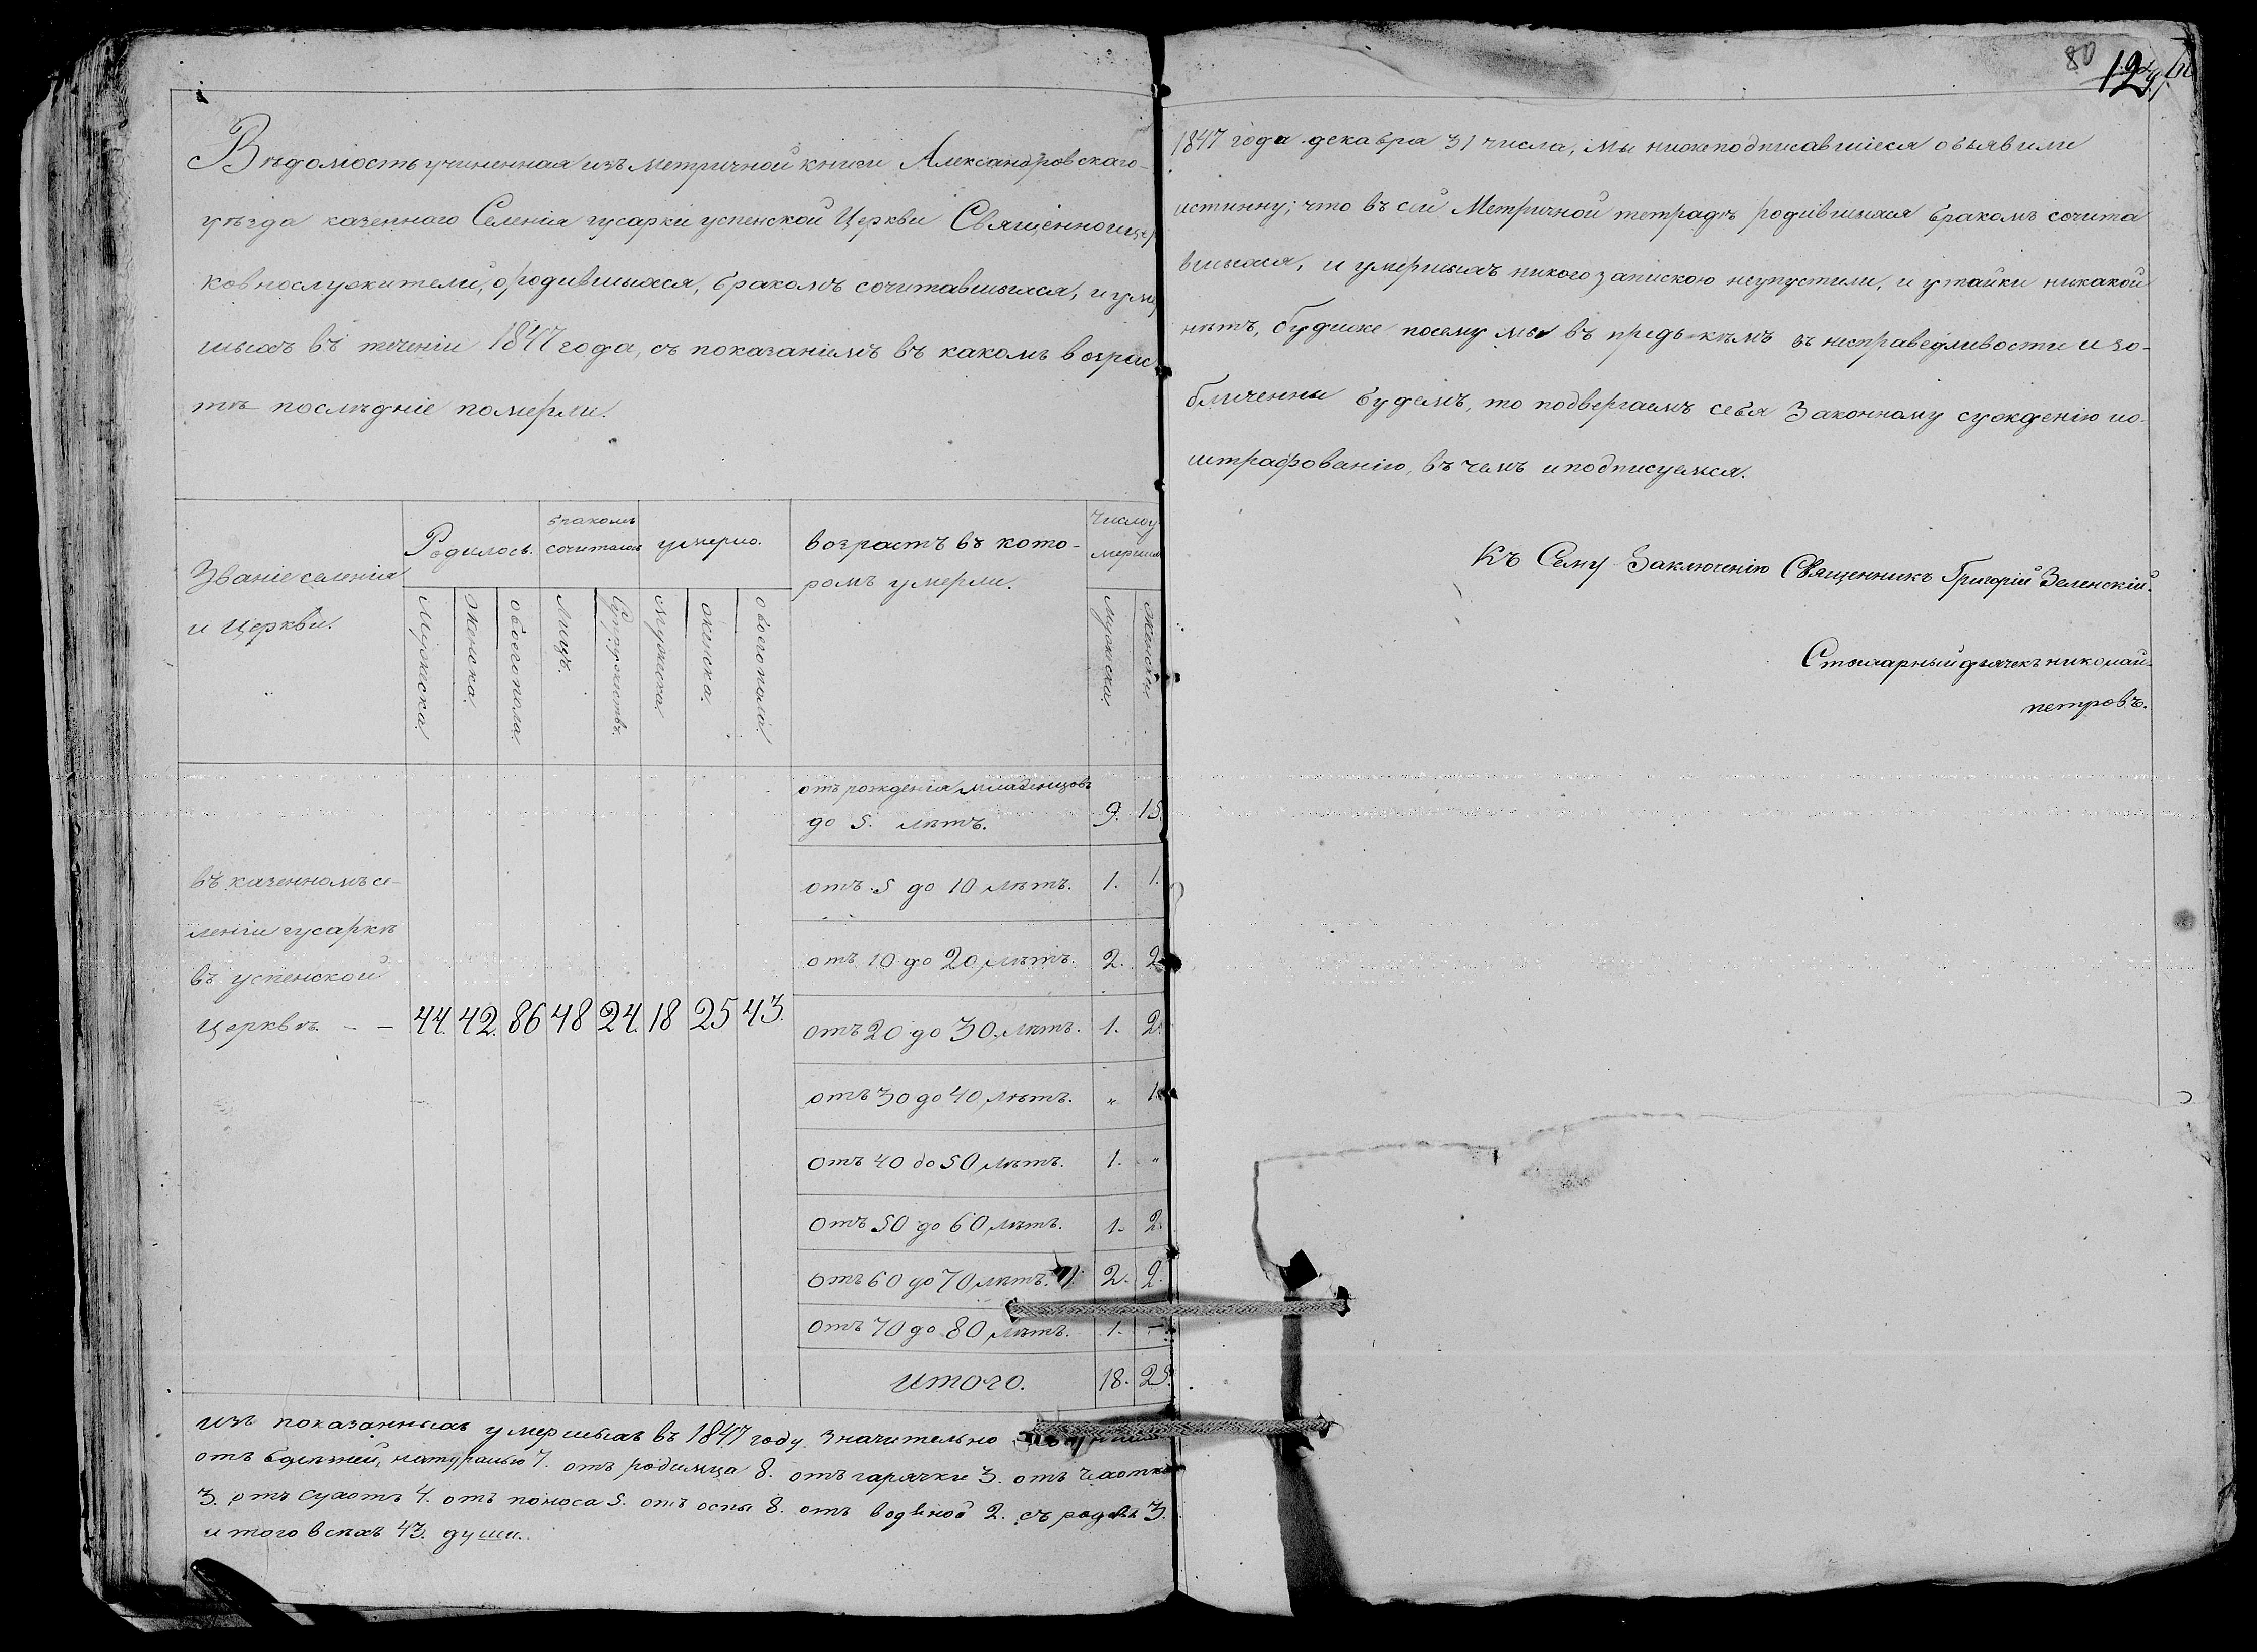 Вѣдомость учиненная изъ Метричной книги Александровскаго
уѣзда казеннаго Селенія гусарки успенской Церкви Священноцер
ковнослужителей, ородившихся, бракомъ сочитавшихся, и умер
шихъ въ теченіи 1847 года, съ показаніемъ въ какомъ возрас
тѣ послѣдніе померли.
Званіе селенія
и Церкви.
Родилось.
бракомъ
сочиталось
умерло.
возрастъ въ кото-
ромъ умерли.
Число у
мершихъ
Мужеска.
Женска.
обоего пола.
Лицъ.
Супружествъ.
Мужеска.
женска.
обоего пола.
Мужеска.
Женска.
въ казенномъ се-
леніи гусаркѣ
въ успенской
Церквѣ. - - 44. 42. 86 48 24. 18 25 43.
отъ рожденія младенцовъ
до 5. лѣтъ. 9. 15.
отъ 5 до 10 лѣтъ. 1. 1.
отъ 10 до 20 лѣтъ. 2. 2.
отъ 20 до 30 лѣтъ. 1. 2.
отъ 30 до 40 лѣтъ. „ 1.
отъ 40 до 50 лѣтъ. 1. „
отъ 50 до 60 лѣтъ. 1. 2.
отъ 60 до 70 лѣтъ. 2. 2.
отъ 70 до 80 лѣтъ. 1. -
итого. 18. 25.
изъ показанныхъ умершихъ въ 1847 году значительно
отъ болезней, натурально 7. отъ родимца 8. отъ гарячки 3. отъ чахотки
3. отъ сухотъ 4. отъ поноса 5. отъ оспы 8. отъ водяной 2. съ родовъ 3.
итого всѣхъ 43. души.
80
1847 года декабря 31 числа, мы нижеподписавшіеся объявили
истинну; что въ сей Метричной тетрадѣ родившихся бракомъ сочита
вшихся, и умершихъ никого запискою неупустили, и утайки никакой
нѣтъ, будиже посему мы въ предь кѣмъ въ несправедливости изо-
бличенны будемъ, то подвергаемъ себя Законному сужденію ио-
штрафованію, въ чемъ иподписуемся.
Къ Сему Заключенію Священникъ Григорій Зеленскій.
Стихарный дьячекъ николай
петровъ.